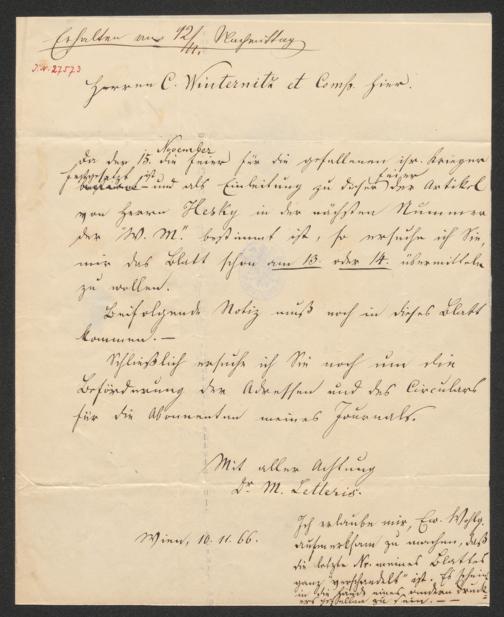 Erhalten am 12/11. Nachmittag
J.N. 27573
Herren C. Winternitz et Comp. hier.
November
Da der 15. die Feier für die gefallenen isr. Krieger
festgesetzt ist Feier
und als Einleitung zu dieser der Artikel
von Herrn Hesky in der nächsten Nummer
der "W. M." bestimmt ist, so ersuche ich Sie,
mir das Blatt schon am 13. oder 14. übermitteln
zu wollen.
Beifolgende Notiz muß noch in dieses Blatt
kommen. —
Schließlich ersuche ich Sie noch um die
Beförderung der Adressen und des Circulars
für die Abonnenten meines Journals.
Mit aller Achtung
Dr. M. Letteris.
Wien, 10. 11. 66.
Ich erlaube mir, Ew. Wohlg.
aufmerksam zu machen, daß
die letzte Nr. meines Blattes
ganz "verschandelt" ist. Es schein
in die Hände eines andern Druck
ers gefallen zu sein. —